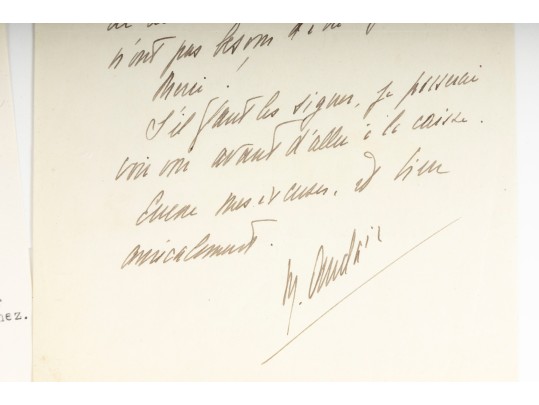 n'ont pas besoin d'
Merci !
S'il faut les signer, je passerai
voir avant d'aller à la caisse.
Encore mes excuses, et bien
amicalement.
nez.